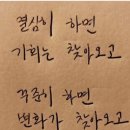 결심이 하면
기회는 찾아오고
꾸준히 하면
변화가 찾아오고